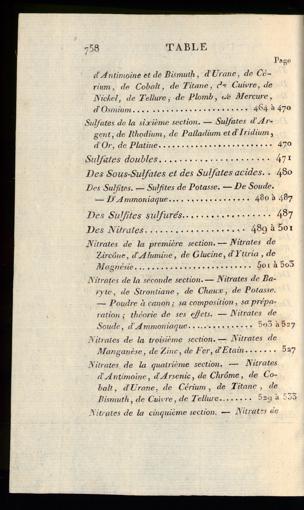 758 TABLE
Page
d'Antimoine et de Bismuth, d'Urane, de Cé-
rium, de Cobalt, de Titane, de Cuivre, de
Nickel, de Tellure, de Plomb, de Mercure,
d'Osmium............... 464 à 470
Sulfates de la sixième section. — Sulfates d'Ar-
gent, de Rhodium, de Palladium et d'Iridium,
d'Or, de Platine............... 470
Sulfates doubles............... 471
Des Sous-Sulfates et des Sulfates acides.. 480
Des Sulfites. — Sulfites de Potasse. — De Soude.
— D'Ammoniaque............... 480 à 487
Des Sulfites sulfurés............... 487
Des Nitrates............... 489 à 501
Nitrates de la première section. — Nitrates de
Zircône, d'Alumine, de Glucine, d'Yttria, de
Magnésie............... 501 à 503
Nitrates de la seconde section. — Nitrates de Ba-
ryte, de Strontiane, de Chaux, de Potasse.
— Poudre à canon; sa composition, sa prépa-
ration; théorie de ses effets. — Nitrates de
Soude, d'Ammoniaque............... 503 à 527
Nitrates de la troisième section. — Nitrates de
Manganèse, de Zinc, de Fer, d'Etain....... 527
Nitrates de la quatrième section. — Nitrates
d'Antimoine, d'Arsenic, de Chrôme, de Co-
balt, d'Urane, de Cérium, de Titane, de
Bismuth, de Cuivre, de Tellure....... 529 à 533
Nitrates de la cinquième section. — Nitrates de